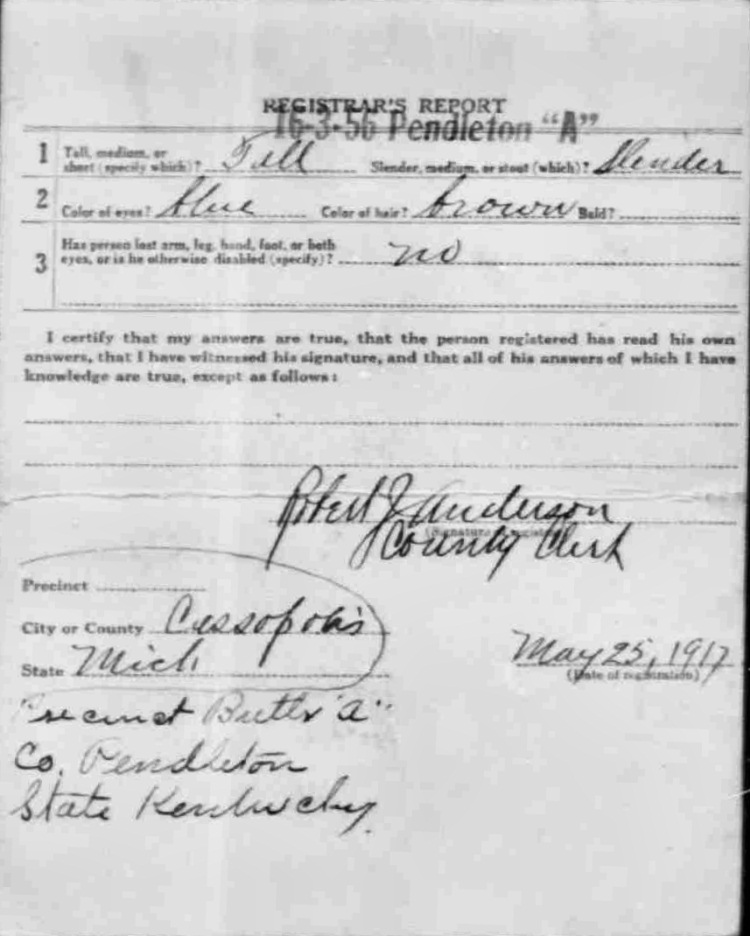 REGISTRAR'S REPORT
16-3-56 Pendleton "A"
1 Tall, medium, or short (specify which)? Tall Slender, medium, or stout (which)? Slender
2 Color of eyes? blue Color of hair? brown Bald?
3 Has person lost arm, leg, hand, foot, or both
eyes, or is he otherwise disabled (specify)? no
I certify that my answers are true, that the person registered has read his own
answers, that I have witnessed his signature, and that all of his answers of which I have
knowledge are true, except as follows:
Robert J Anderson
(Signature of registrar)
County Clerk
Precinct
City or County Cassopolis
State Mich
May 25, 1917
(Date of registration)
Precinct Butler "A"
Co. Pendleton
State Kentucky.